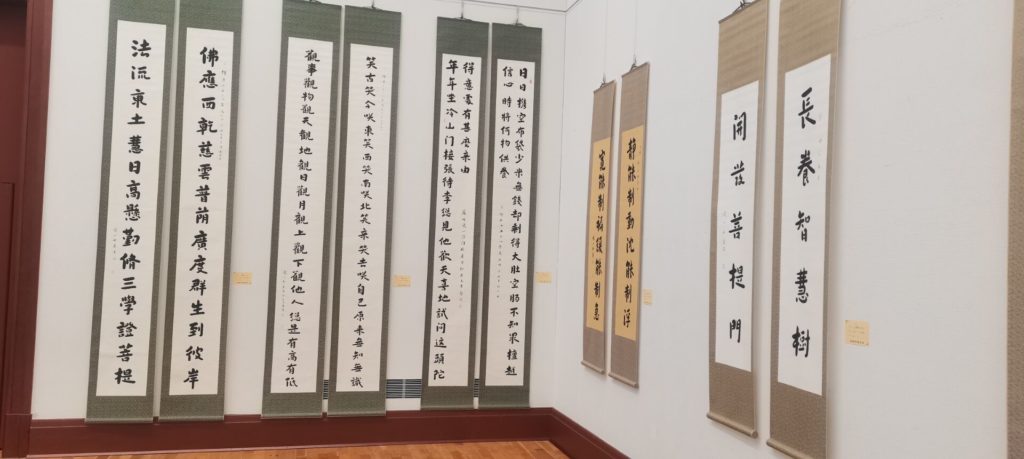 佛應西乾慈雲普蔭廣度群生到彼岸
法流東土慧日高懸勤脩三學證菩提
笑古笑今咲東笑西笑南咲北笑来笑去咲自己原来無知無識
觀事觀物觀天觀地觀日觀月觀上觀下觀他人總是有高有低
日日携空布袋少米無錢却剩得大肚空腸不知眾檀越
信心時將何物供養
年年坐冷山门接張待李總見他歡天喜地試问這頭陀
得意處有甚麼来由
靜能制動沈能制浮
寬能制褊緩能制急
長養智慧樹
開發菩提門